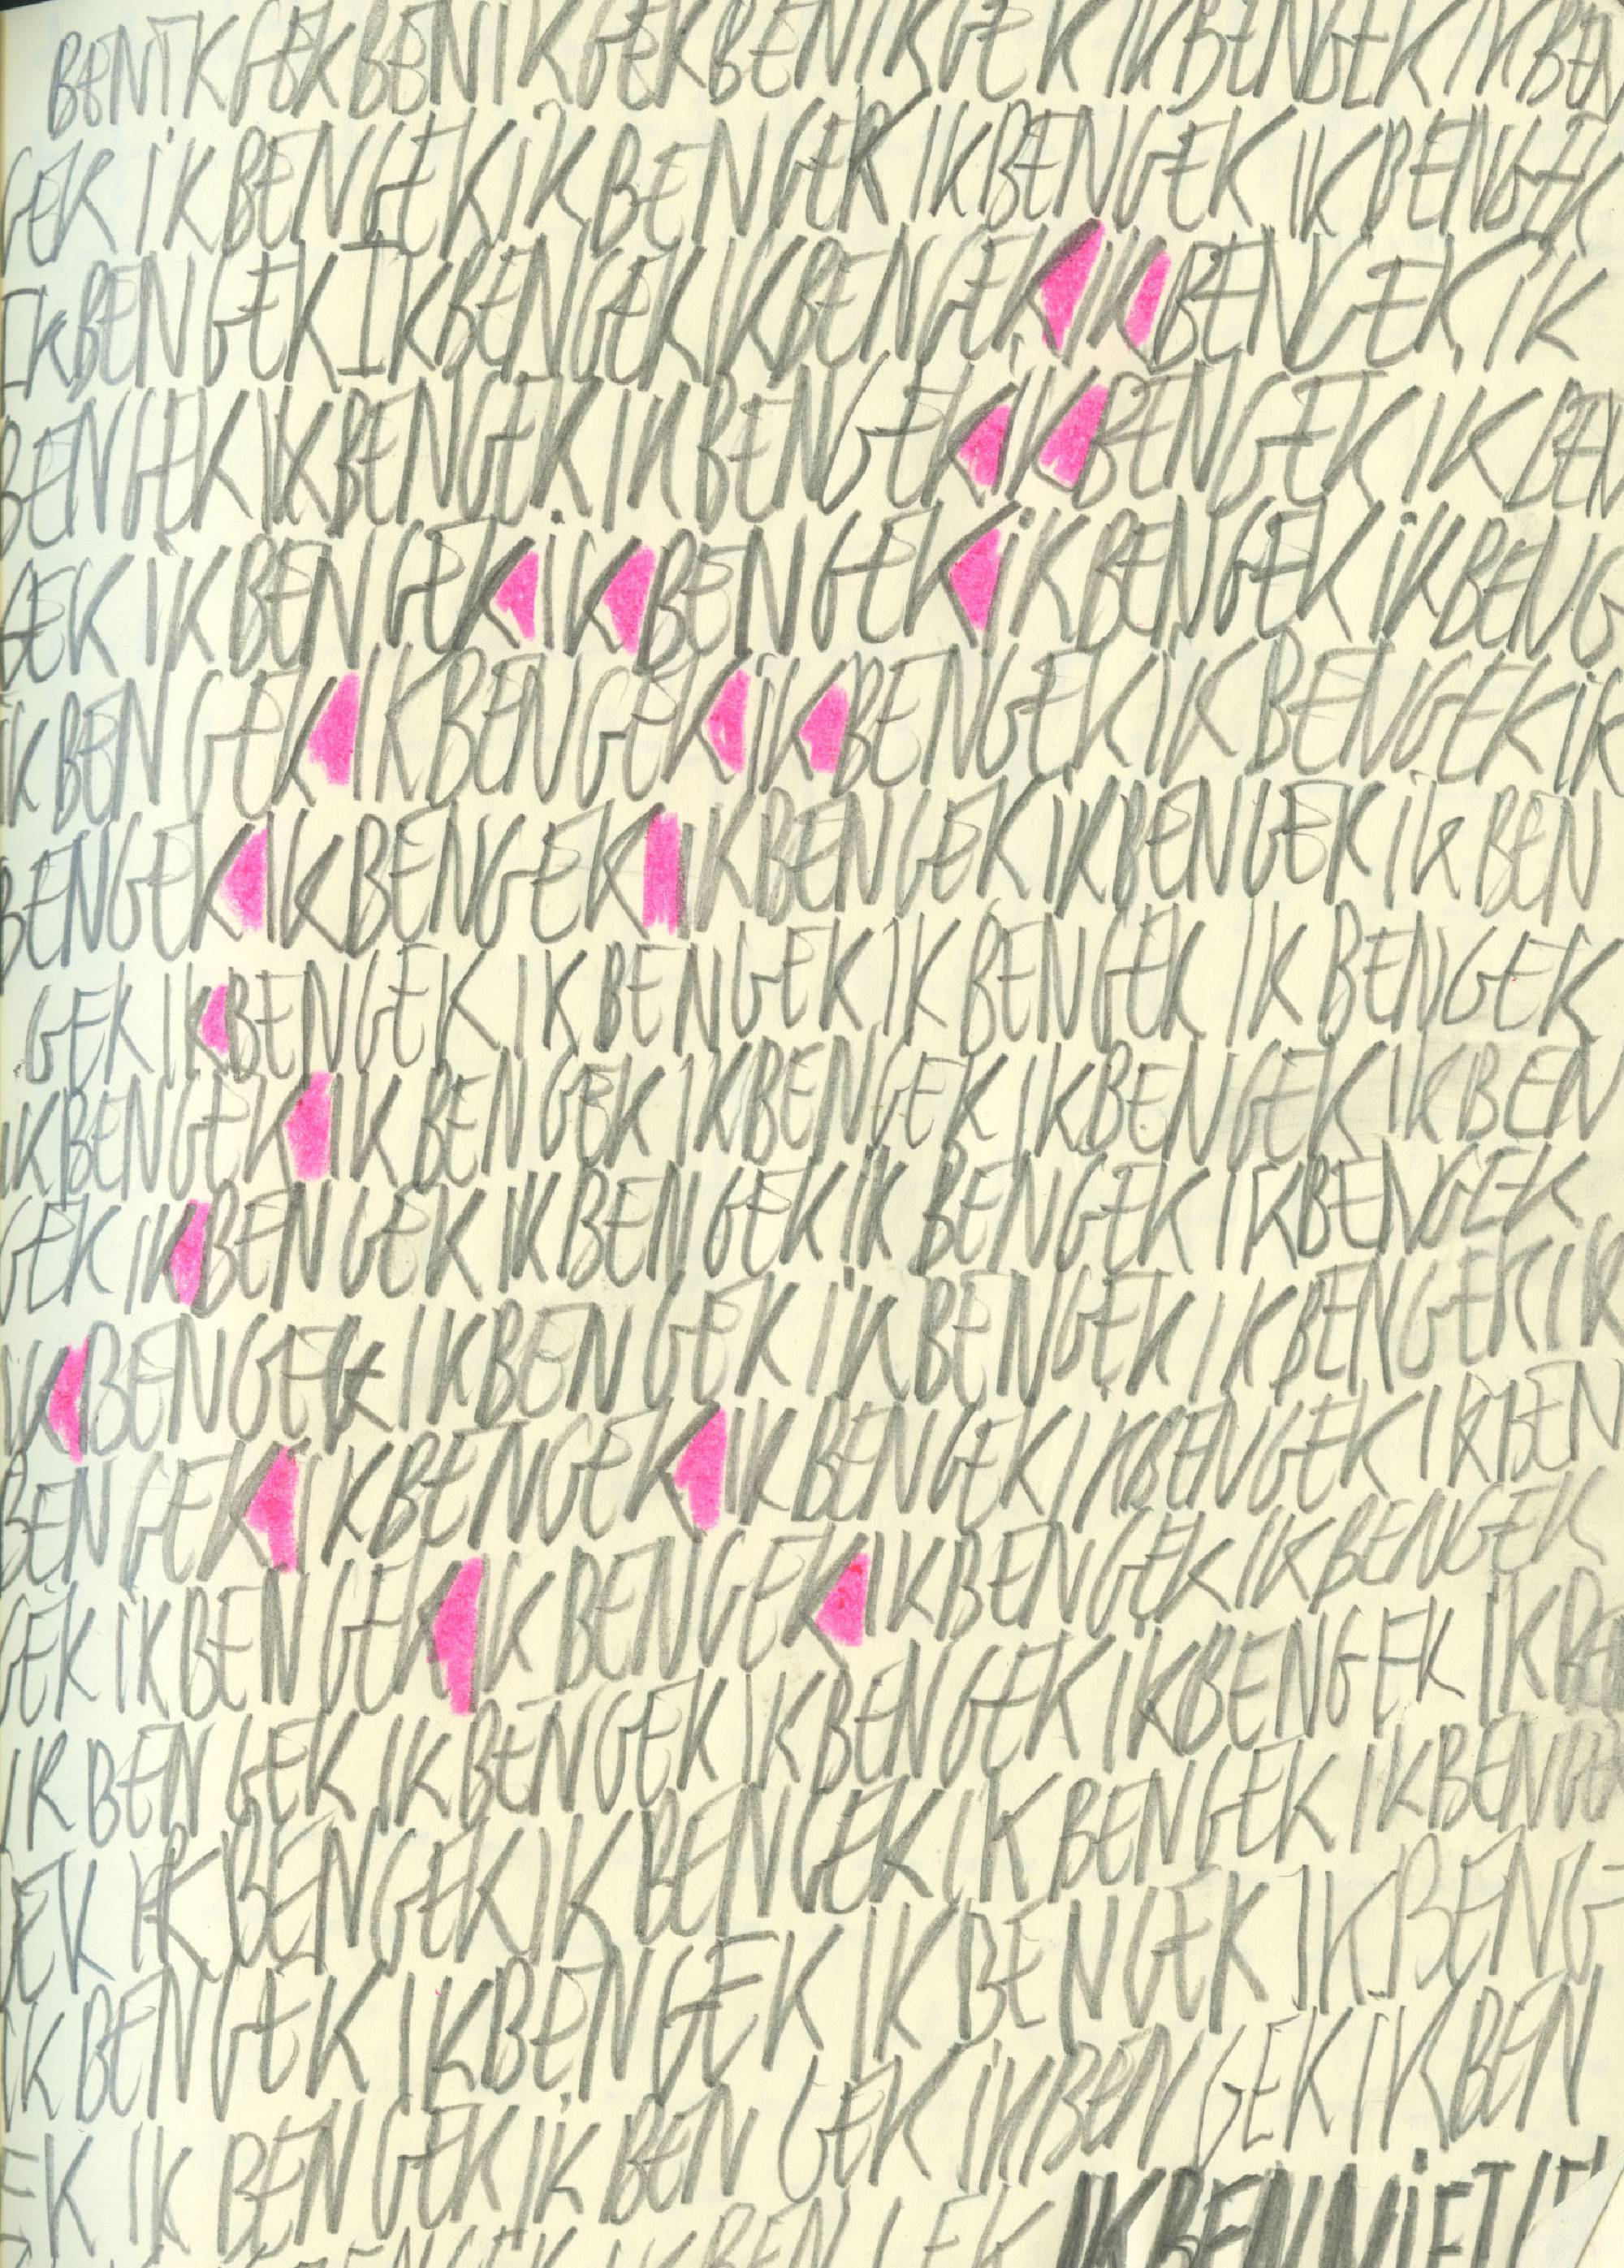 BEN IK GEK BEN IK GEK BEN IK GEK IK BEN GEK IK BEN
GEK IK BEN GEK IK BEN GEK IK BEN GEK IK BEN GEK
IK BEN GEK IK BEN GEK IK BEN GEK IK BEN GEK IK
BEN GEK IK BEN GEK IK BEN GEK IK BEN GEK IK BEN
GEK IK BEN GEK IK BEN GEK IK BEN GEK IK BEN G
IK BEN GEK IK BEN GEK IK BEN GEK IK BEN GEK IK
BEN GEK IK BEN GEK IK BEN GEK IK BEN GEK IK BEN
GEK IK BEN GEK IK BEN GEK IK BEN GEK IK BEN GEK
IK BEN GEK IK BEN GEK IK BEN GEK IK BEN GEK IK BEN
GEK IK BEN GEK IK BEN GEK IK BEN GEK IK BEN GEK
IK BEN GEK IK BEN GEK IK BEN GEK IK BEN GEK IK
BEN GEK IK BEN GEK IK BEN GEK IK BEN GEK IK BEN
GEK IK BEN GEK IK BEN GEK IK BEN GEK IK BEN GEK
IK BEN GEK IK BEN GEK IK BEN GEK IK BEN GEK IK BE
GEK IK BEN GEK IK BEN GEK IK BEN GEK IK BEN GE
IK BEN GEK IK BEN GEK IK BEN GEK IK BEN G
EK IK BEN GEK IK BEN GEK IK BEN GEK IK BEN
GEK IK BEN GEK IK BEN GEK IK BEN NIET